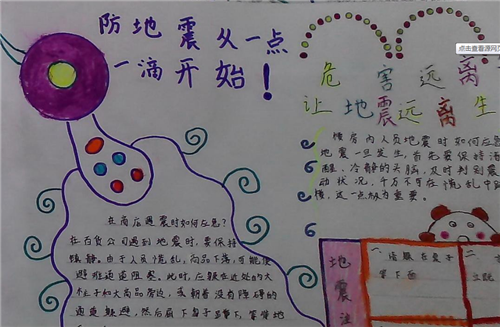 防地震从一点
一滴开始！
危害远离
让地震远离生
点击查看源网页
楼房内人员地震时如何应急?
地震一旦发生，首先要保持清
醒、冷静的头脑，及时判别震
动状况，千万不可在慌乱中
楼，这一点极为重要。
在商店遇震时如何应急?
在百货公司遇到地震时，要保持
镇静。由于人员慌乱，商品下落，可能使
避难通道阻塞。此时，应躲在近处的大
柱子和大商品旁边，或朝着没有障碍的
通道躲避，然后屈下身子蹲下，等待地
地震
一